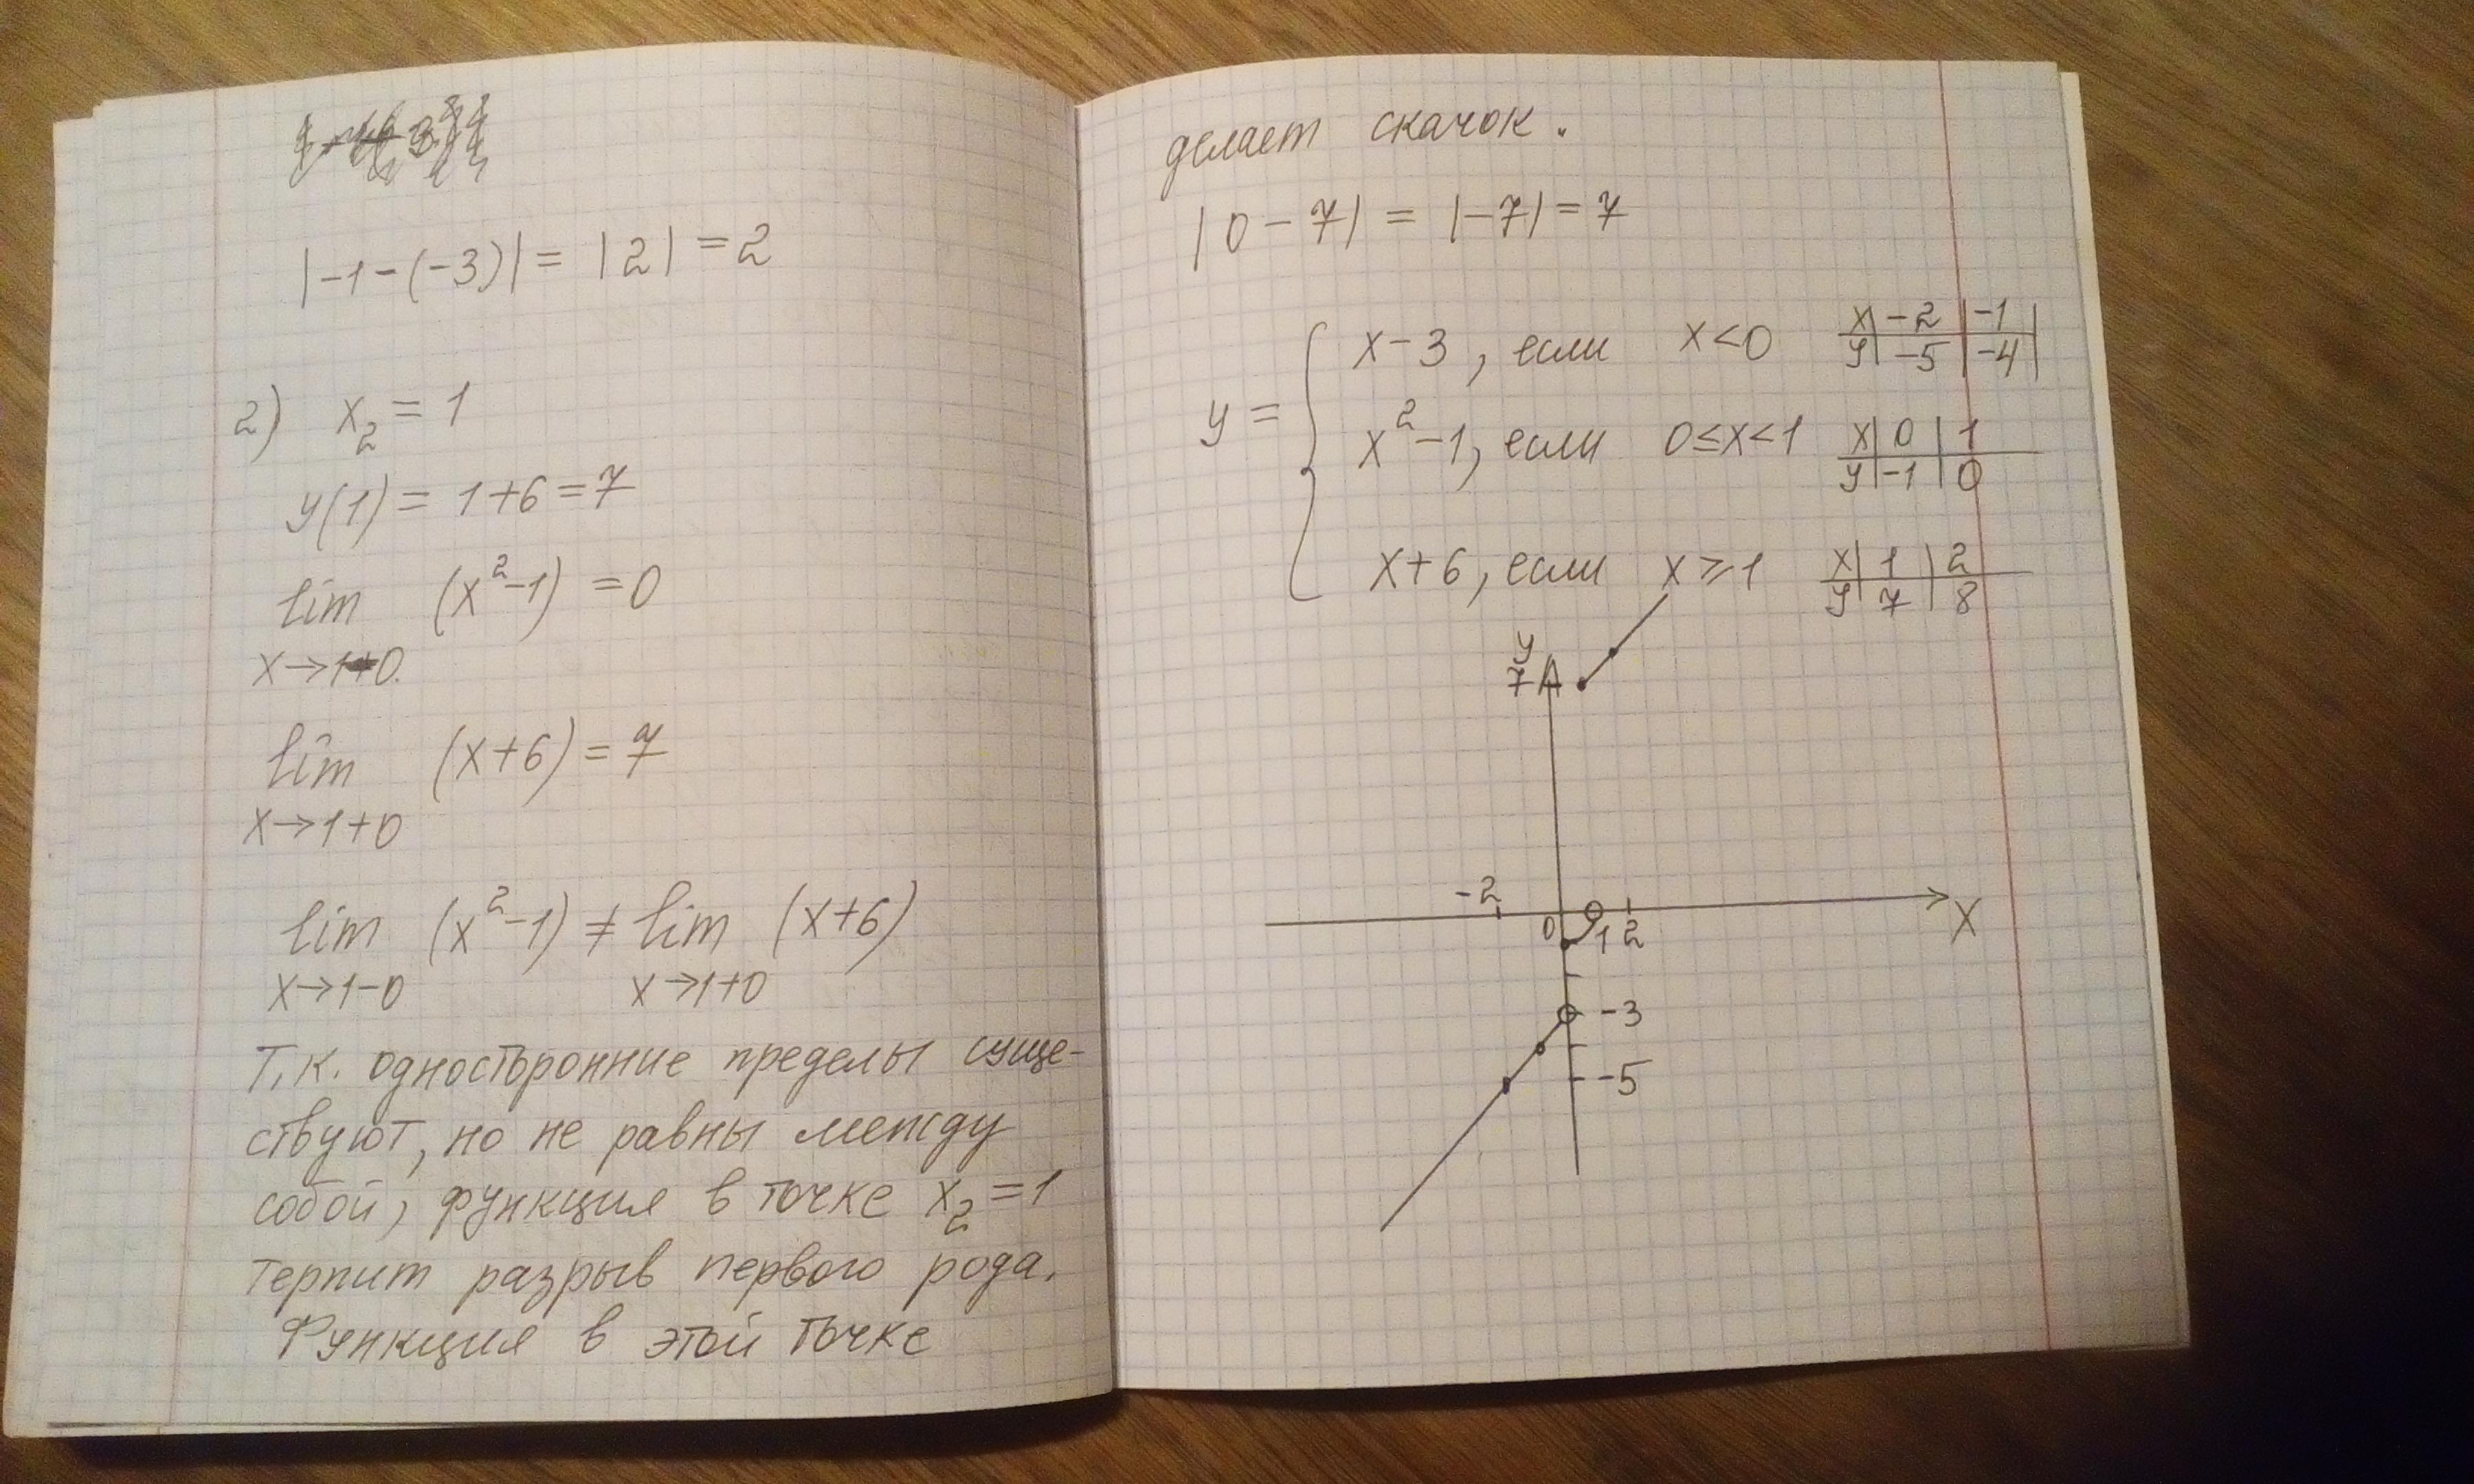 |-1-(-3)| = |2| = 2
2) x₂ = 1
y(1) = 1+6 = 7
lim (x²-1) = 0
x→1-0
lim (x+6) = 7
x→1+0
lim (x²-1) ≠ lim (x+6)
x→1-0 x→1+0
Т.к. односторонние пределы суще-
ствуют, но не равны между
собой, функция в точке x₂=1
терпит разрыв первого рода.
Функция в этой точке
делает скачок.
|0-7| = |-7| = 7
y = { x-3, если x<0
x | -2 | -1 |
y | -5 | -4 |
x²-1, если 0≤x<1
x | 0 | 1
y | -1 | 0
x+6, если x≥1
x | 1 | 2
y | 7 | 8
y
7
-2
0 1 2
X
-3
-5